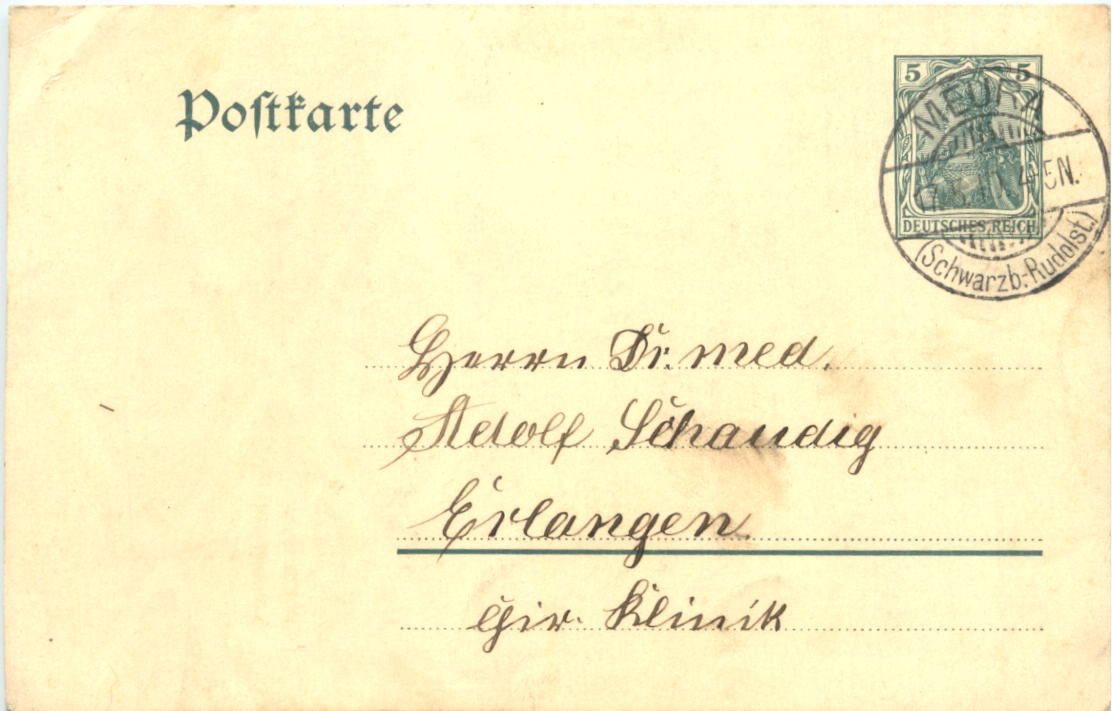 Postkarte
5 5
DEUTSCHES REICH
MEURA
4-5N.
(Schwarzb.-Rudolst.)
Herrn Dr. med.
Adolf Schaudig
Erlangen
Klinik